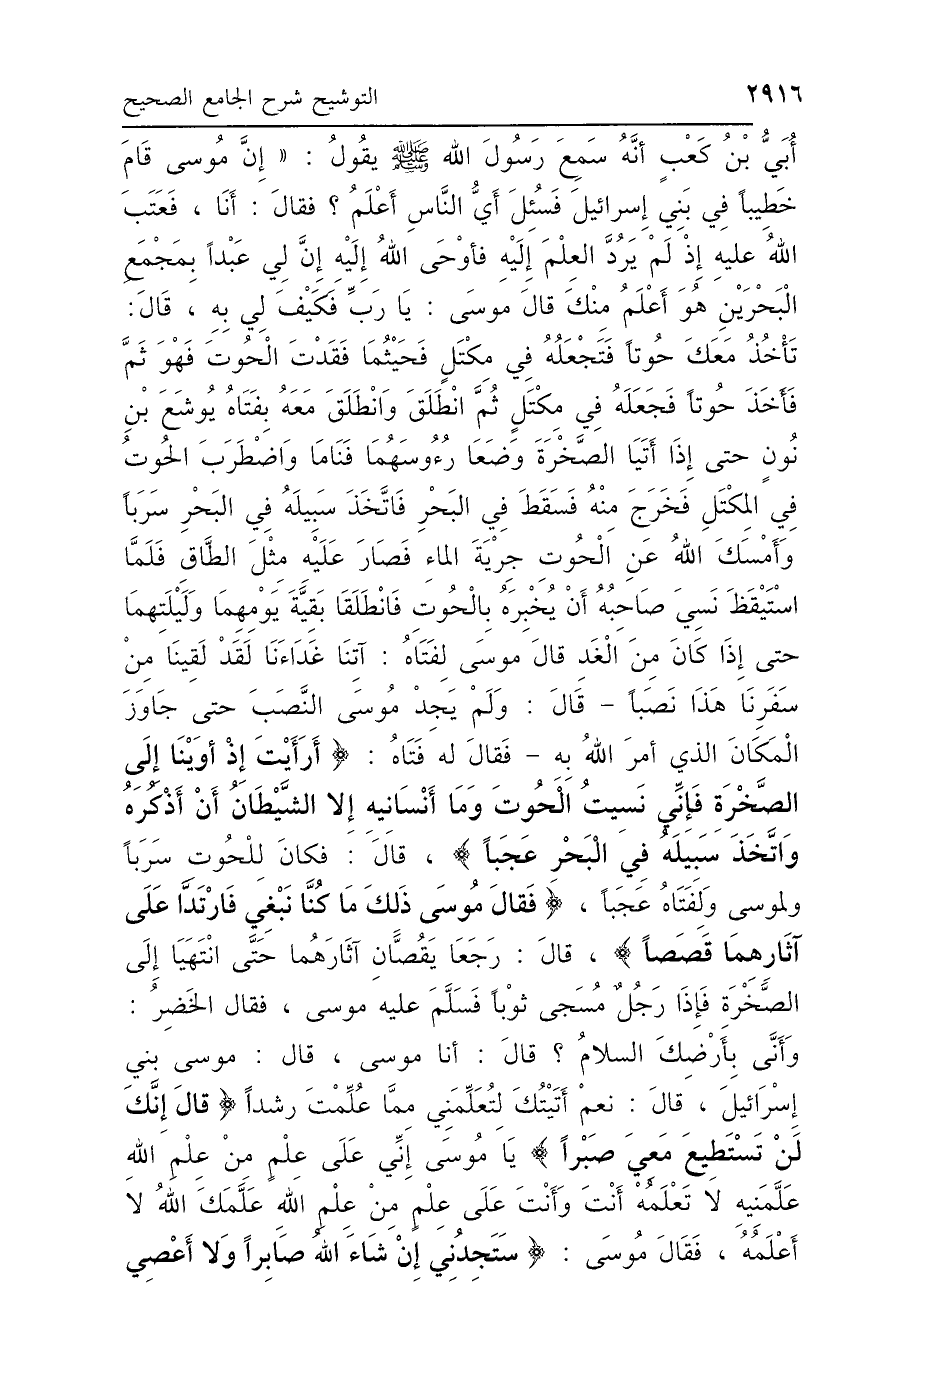 ٢٩١٦ التوشيح شرح الجامع الصحيح
أُبَيُّ بْنُ كَعْبٍ أنَّهُ سَمِعَ رَسُولَ الله ﷺ يقُولُ : « إنَّ مُوسى قَامَ
خَطِيباً في بَنِي إسرائيلَ فَسُئِلَ أَيُّ النَّاسِ أَعْلَمُ ؟ فقالَ : أَنَا ، فَعَتَبَ
اللهُ عليهِ إذْ لَمْ يَرُدَّ العلْمَ إلَيْهِ فأوْحَى اللهُ إلَيْهِ إنَّ لي عَبْداً بِمَجْمَعِ
الْبَحْرَيْنِ هُوَ أَعْلَمُ مِنْكَ قالَ موسَى : يا رَبِّ فَكَيْفَ لي به ، قَالَ:
تَأْخُذُ مَعَكَ حُوتاً فَتَجْعَلُهُ فِي مِكْتَلٍ فَحَيْثُمَا فَقَدْتَ الْحُوتَ فَهْوَ ثَمَّ
فَأَخَذَ حُوتاً فَجَعَلَهُ فِي مِكْتَلٍ ثُمَّ انْطَلَقَ وَانْطَلَقَ مَعَهُ بِفَتَاهُ يُوشَعَ بْنِ
نُونٍ حتى إذَا أَتَيَا الصَّخْرَةَ وَضَعَا رءُوسَهُمَا فَنَامَا وَاضْطَرَبَ الحُوتُ
فِي المِكْتَلِ فَخَرَجَ مِنْهُ فَسَقَطَ فِي البَحْرِ فَاتَّخَذَ سَبِيلَهُ فِي البَحْرِ سَرَبَاً
وَأَمْسَكَ اللهُ عَنِ الْحُوتِ جِرْيَةَ الماءِ فَصَارَ عَلَيْهِ مِثْلَ الطَّاقِ فَلَمَّا
اسْتَيْقَظَ نَسِيَ صَاحِبُهُ أَنْ يُخْبِرَهُ بالْحُوتِ فَانْطَلَقَا بَقِيَّةَ يَوْمِهِمَا وَلَيْلَتِهِمَا
حتى إذَا كَانَ مِنَ الْغَدِ قالَ موسَى لِفَتَاهُ : آتِنَا غَدَاءَنَا لَقَدْ لَقِينَا مِنْ
سَفَرِنَا هَذَا نَصَبَاً – قَالَ : وَلَمْ يَجِدْ مُوسَى النَّصَبَ حتى جَاوَزَ
الْمَكَانَ الذي أمرَ اللهُ بِهِ – فَقالَ له فَتَاهُ : ﴿ أَرَأَيْتَ إذْ أوَيْنَا إلَى
الصَّخْرَةِ فَإنِّي نَسيتُ الْحُوتَ وَمَا أَنْسَانيهِ إلا الشَّيْطَانُ أَنْ أَذْكُرَهُ
وَاتَّخَذَ سَبيلَهُ في الْبَحْرِ عَجَبَاً ﴾ ، قالَ : فكانَ للْحُوتِ سَرَبَاً
ولموسى وَلفَتَاهُ عَجَبَاً ، ﴿ فَقالَ مُوسَى ذَلكَ مَا كُنَّا نَبْغي فَارْتَدَّا عَلَى
آثَارِهِمَا قَصَصَاً ﴾ ، قالَ : رَجَعَا يَقُصَّانِ آثارَهُما حَتَّى انْتَهَيَا إلَى
الصَّخْرَةِ فَإِذَا رَجُلٌ مُسَجى ثوْبَاً فَسَلَّمَ عليه موسى ، فقال الخَضرُ :
وَأَنَّى بِأَرْضِكَ السلامُ ؟ قالَ : أنا موسى ، قال : موسى بني
إسْرَائيلَ ، قالَ : نعم أَتَيْتُكَ لتُعَلِّمَني ممَّا عُلِّمْتَ رشداً ﴿ قالَ إنَّكَ
لَنْ تَسْتَطيعَ مَعِيَ صَبْراً ﴾ يَا مُوسَى إنِّي عَلَى عِلْمٍ مِنْ عِلْمِ اللهِ
عَلَّمَنيهِ لا تَعْلَمُهُ أَنْتَ وَأَنْتَ عَلَى عِلْمٍ مِنْ عِلْمِ الله عَلَّمَكَ اللهُ لا
أَعْلَمُهُ ، فَقَالَ مُوسَى : ﴿ سَتَجدُني إنْ شَاءَ اللهُ صَابِراً وَلا أَعْصِي